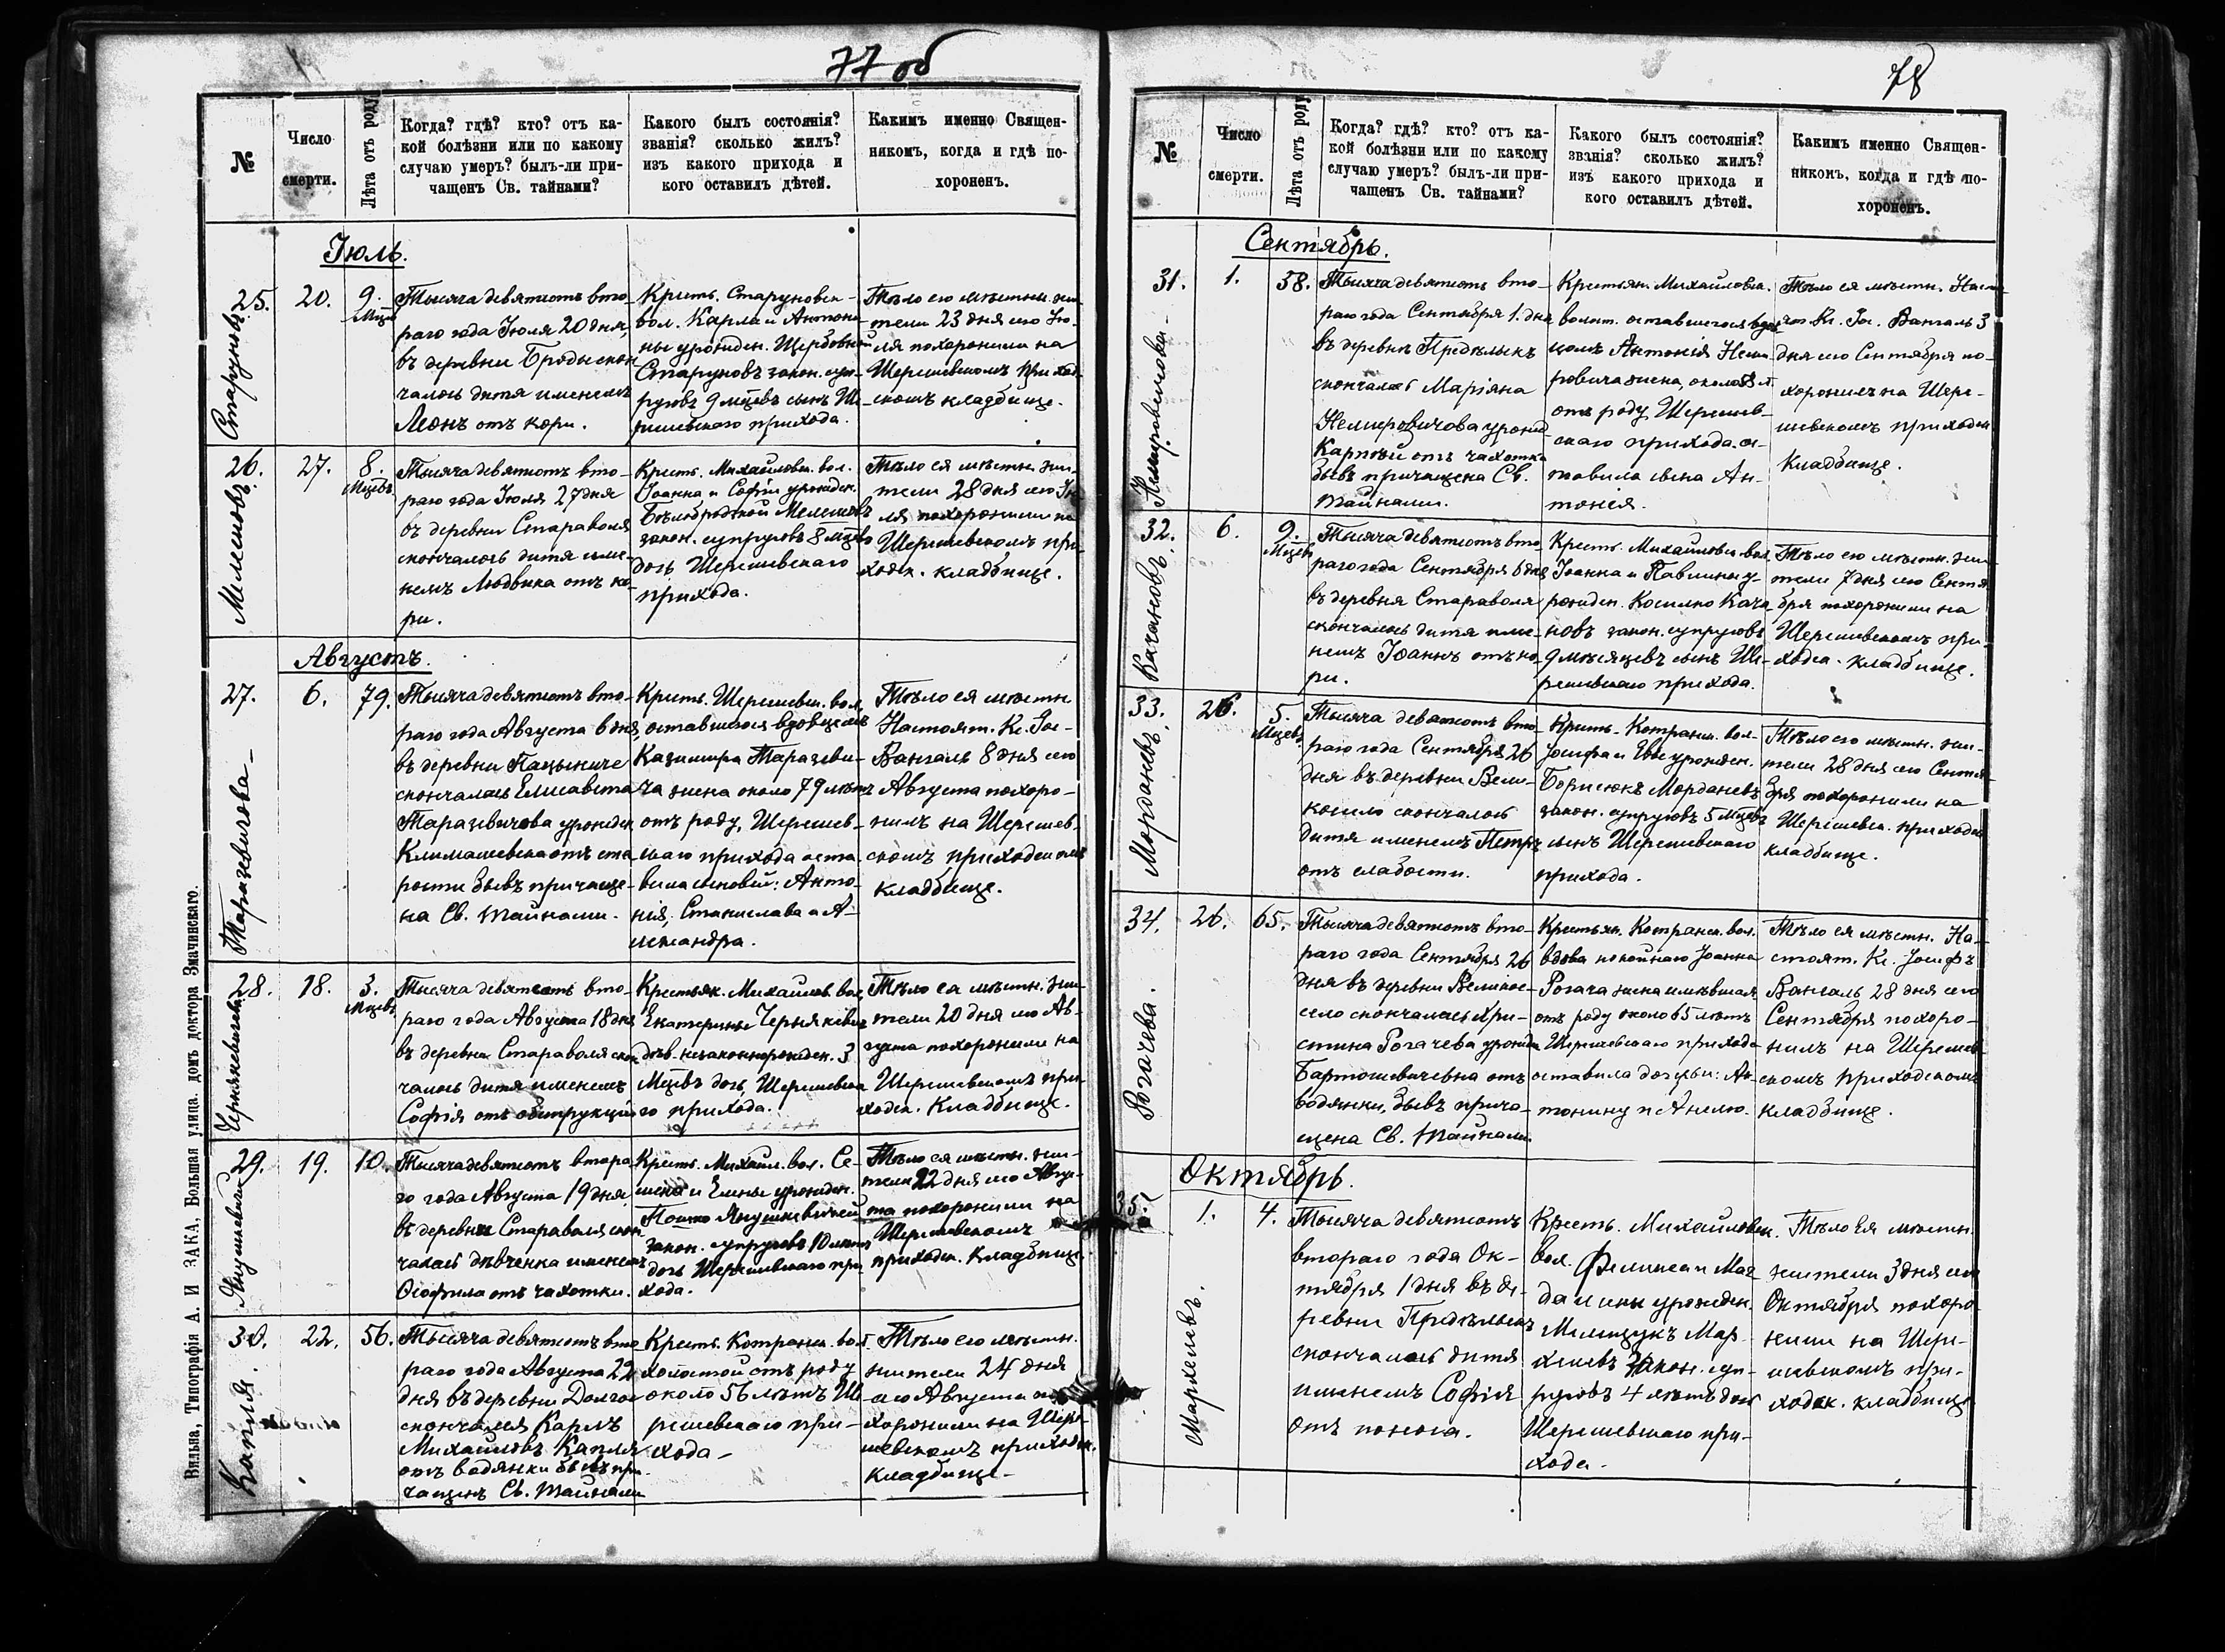 77 об
№
Число
смерти.
Лѣта отъ роду
Когда? гдѣ? кто? отъ ка-
кой болѣзни или по какому
случаю умеръ? былъ-ли при-
чащенъ Св. тайнами?
Какого былъ состоянія?
званія? сколько жилъ?
изъ какого прихода и
кого оставилъ дѣтей.
Какимъ именно Священ-
никомъ, когда и гдѣ по-
хороненъ.
Іюль.
25.
Старуновъ
20.
9.
Мцевъ
Тысяча девятсотъ вто-
раго года Іюля 20 дня,
въ деревни Броды скон-
чалось дитя именемъ
Леонъ отъ кори.
Крест. Старуновск-
вол. Карла и Антони-
ны урожден.
Старуновъ закон. суп-
руговъ 9 мцевъ сынъ Ше-
решевскаго прихода.
Тѣло его мѣстн. жи-
тели 23 дня его Ію-
ля похоронили на
Шерешевскомъ приход-
скомъ кладбище.
26.
27.
8.
Мцевъ
Тысяча девятсотъ вто-
раго года Іюля 27 дня
въ деревни Стараволя
скончалось дитя име-
немъ Людвика отъ ко-
ри.
Крест. Михайловск. вол.
Іоанна и Софіи урожден.
закон. супруговъ 8 мцевъ
дочь Шерешевскаго
прихода.
Тѣло ея мѣстн. жи-
тели 28 дня его Ію-
ля похоронили на
Шерешевскомъ при-
ходск. кладбище.
Августъ.
27.
Таразевичова
6.
79.
Тысяча девятсотъ вто-
раго года Августа 6 дня,
въ деревни Пацыничи
скончалась Елисавета
Таразевичова урожден.
Климашевска отъ ста-
рости бывъ причаще-
на Св. Тайнами.
Крест. Шерешевск. вол.
оставшегося вдовцемъ
Казимира Таразеви-
ча жена около 79 лѣтъ
отъ роду, Шерешев-
скаго прихода оста-
вила сыновей: Анто-
нія, Станислава и А-
лександра.
Тѣло ея мѣстн.
Настоят. Кс. Іос.
Вангаль 8 дня его
Августа похоро-
нилъ на Шерешев-
скомъ приходскомъ
кладбище.
28.
18.
3.
Мцевъ
Тысяча девятсотъ вто-
раго года Августа 18 дня
въ деревни Стараволя скон-
чалось дитя именемъ
Софія отъ обструкціи
Крестьян. Михайлов. вол.
Екатерины
дѣв. незаконнорожден. 3
Мцевъ дочь Шерешевска-
го прихода.
Тѣло ея мѣстн. жи-
тели 20 дня его Ав-
густа похоронили на
Шерешевскомъ при-
ходск. Кладбище.
29.
19.
10.
Тысяча девятсотъ втора-
го года Августа 19 дня
въ деревни Стараволя скон-
чалась дѣвченка именемъ
Ѳеофила отъ чахотки.
Крест. Михайл. вол. Се-
мена и Елены урожден.
закон. супруговъ 10 лѣтъ
дочь Шерешевскаго при-
хода.
Тѣло ея мѣстн. жи-
тели 22 дня его Авгу-
ста похоронили на
Шерешевскомъ
приходск. Кладбище.
30.
Капля.
22.
56.
Тысяча девятсотъ вто-
раго года Августа 22
дня въ деревни Долгое
скончался Карлъ
Михайловъ Капля
отъ водянки бывъ при-
чащенъ Св. Тайнами
Крест. Котранск. вол.
холостой отъ роду
около 56 лѣтъ Ше-
решевскаго при-
хода-
Тѣло его мѣстн.
жители 24 дня
его Августа по-
хоронили на Шере-
шевскомъ приходск.
кладбище-
Вильна, Типографія А. И ЗАКА, Большая улица. домъ доктора Змачинскаго.
78
№
Число
смерти.
Лѣта отъ роду
Когда? гдѣ? кто? отъ ка-
кой болѣзни или по какому
случаю умеръ? былъ-ли при-
чащенъ Св. тайнами?
Какого былъ состоянія?
званія? сколько жилъ?
изъ какого прихода и
кого оставилъ дѣтей.
Какимъ именно Священ-
никомъ, когда и гдѣ по-
хороненъ.
Сентябрь.
31.
1.
58.
Тысяча девятсотъ вто-
раго года Сентября 1. дня
въ деревни
скончалась Маріяна
Немировичова урожд.
отъ чахотки
бывъ причащена Св.
Тайнами.
Крестьян. Михайловск.
волост. оставшегося вдов-
цомъ Антонія Неми-
ровича жена, около 58 л.
отъ роду Шерешев-
скаго прихода. ос-
тавила сына Ан-
тонія.
Тѣло ея мѣстн. Насто-
ят. Кс. Іос. Вангаль 3
дня его Сентября по-
хоронилъ на Шере-
шевскомъ приходск.
Кладбище.
32.
Качановъ.
6.
9.
Мцевъ
Тысяча девятсотъ вто-
раго года Сентября 6 дня
въ деревня Стараволя
скончалось дитя име-
немъ Іоаннъ отъ ко-
ри.
Крест. Михайловск. вол.
Іоанна и Павлины у-
рожден. Косилко Кача-
новъ закон. супруговъ
9 мѣсяцевъ сынъ Ше-
решевскаго прихода.
Тѣло его мѣстн. жи-
тели 7 дня его Сентя-
бря похоронили на
Шерешевскомъ при-
ходск. кладбище.
33.
Морданевъ.
26.
5.
Мцевъ
Тысяча девятсотъ вто-
раго года Сентября 26
дня въ деревни Вели-
коило скончалось
дитя именемъ Петръ
отъ слабости.
Крест. Котранск. вол.
Іосифа и Евы урожден.
Борисюкъ Морданевъ
закон. супруговъ 5 мцевъ
сынъ Шерешевскаго
прихода.
Тѣло его мѣстн. жи-
тели 28 дня его Сентя-
бря похоронили на
Шерешевск. приходск.
кладбище.
34.
Рогачева.
26.
65.
Тысяча девятсотъ вто-
раго года Сентября 26
дня въ деревни Великое-
село скончалась Хри-
стина Рогачева урожден.
Бартошевичевна отъ
водянки, бывъ прича-
щена Св. Тайнами.
Крестьян. Котранск. вол.
вдова покойнаго Іоанна
Рогача жена имѣвшая
отъ роду около 65 лѣтъ
Шерешевскаго прихода
оставила дочерьи: Ан-
тонину и Анелю.
Тѣло ея мѣстн. На-
стоят. Кс. Іосифъ
Вангаль 28 дня его
Сентября похоро-
нилъ на Шерешев-
скомъ приходскомъ
кладбище.
Октябрь.
35.
Мархелевъ.
1.
4.
Тысяча девятсотъ
втораго года Ок-
тября 1 дня въ де-
ревни
скончалась дитя
именемъ Софія
отъ поноса.
Крест. Михайловск.
вол. Феликса и Маг-
далины урожден.
Мелещукъ Мар-
хелевъ закон. суп-
руговъ 4 лѣтъ дочь
Шерешевскаго при-
хода-
Тѣло Ея мѣстн.
жители 3 дня его
Октября похоро-
нили на Шере-
шевскомъ при-
ходск. кладбище